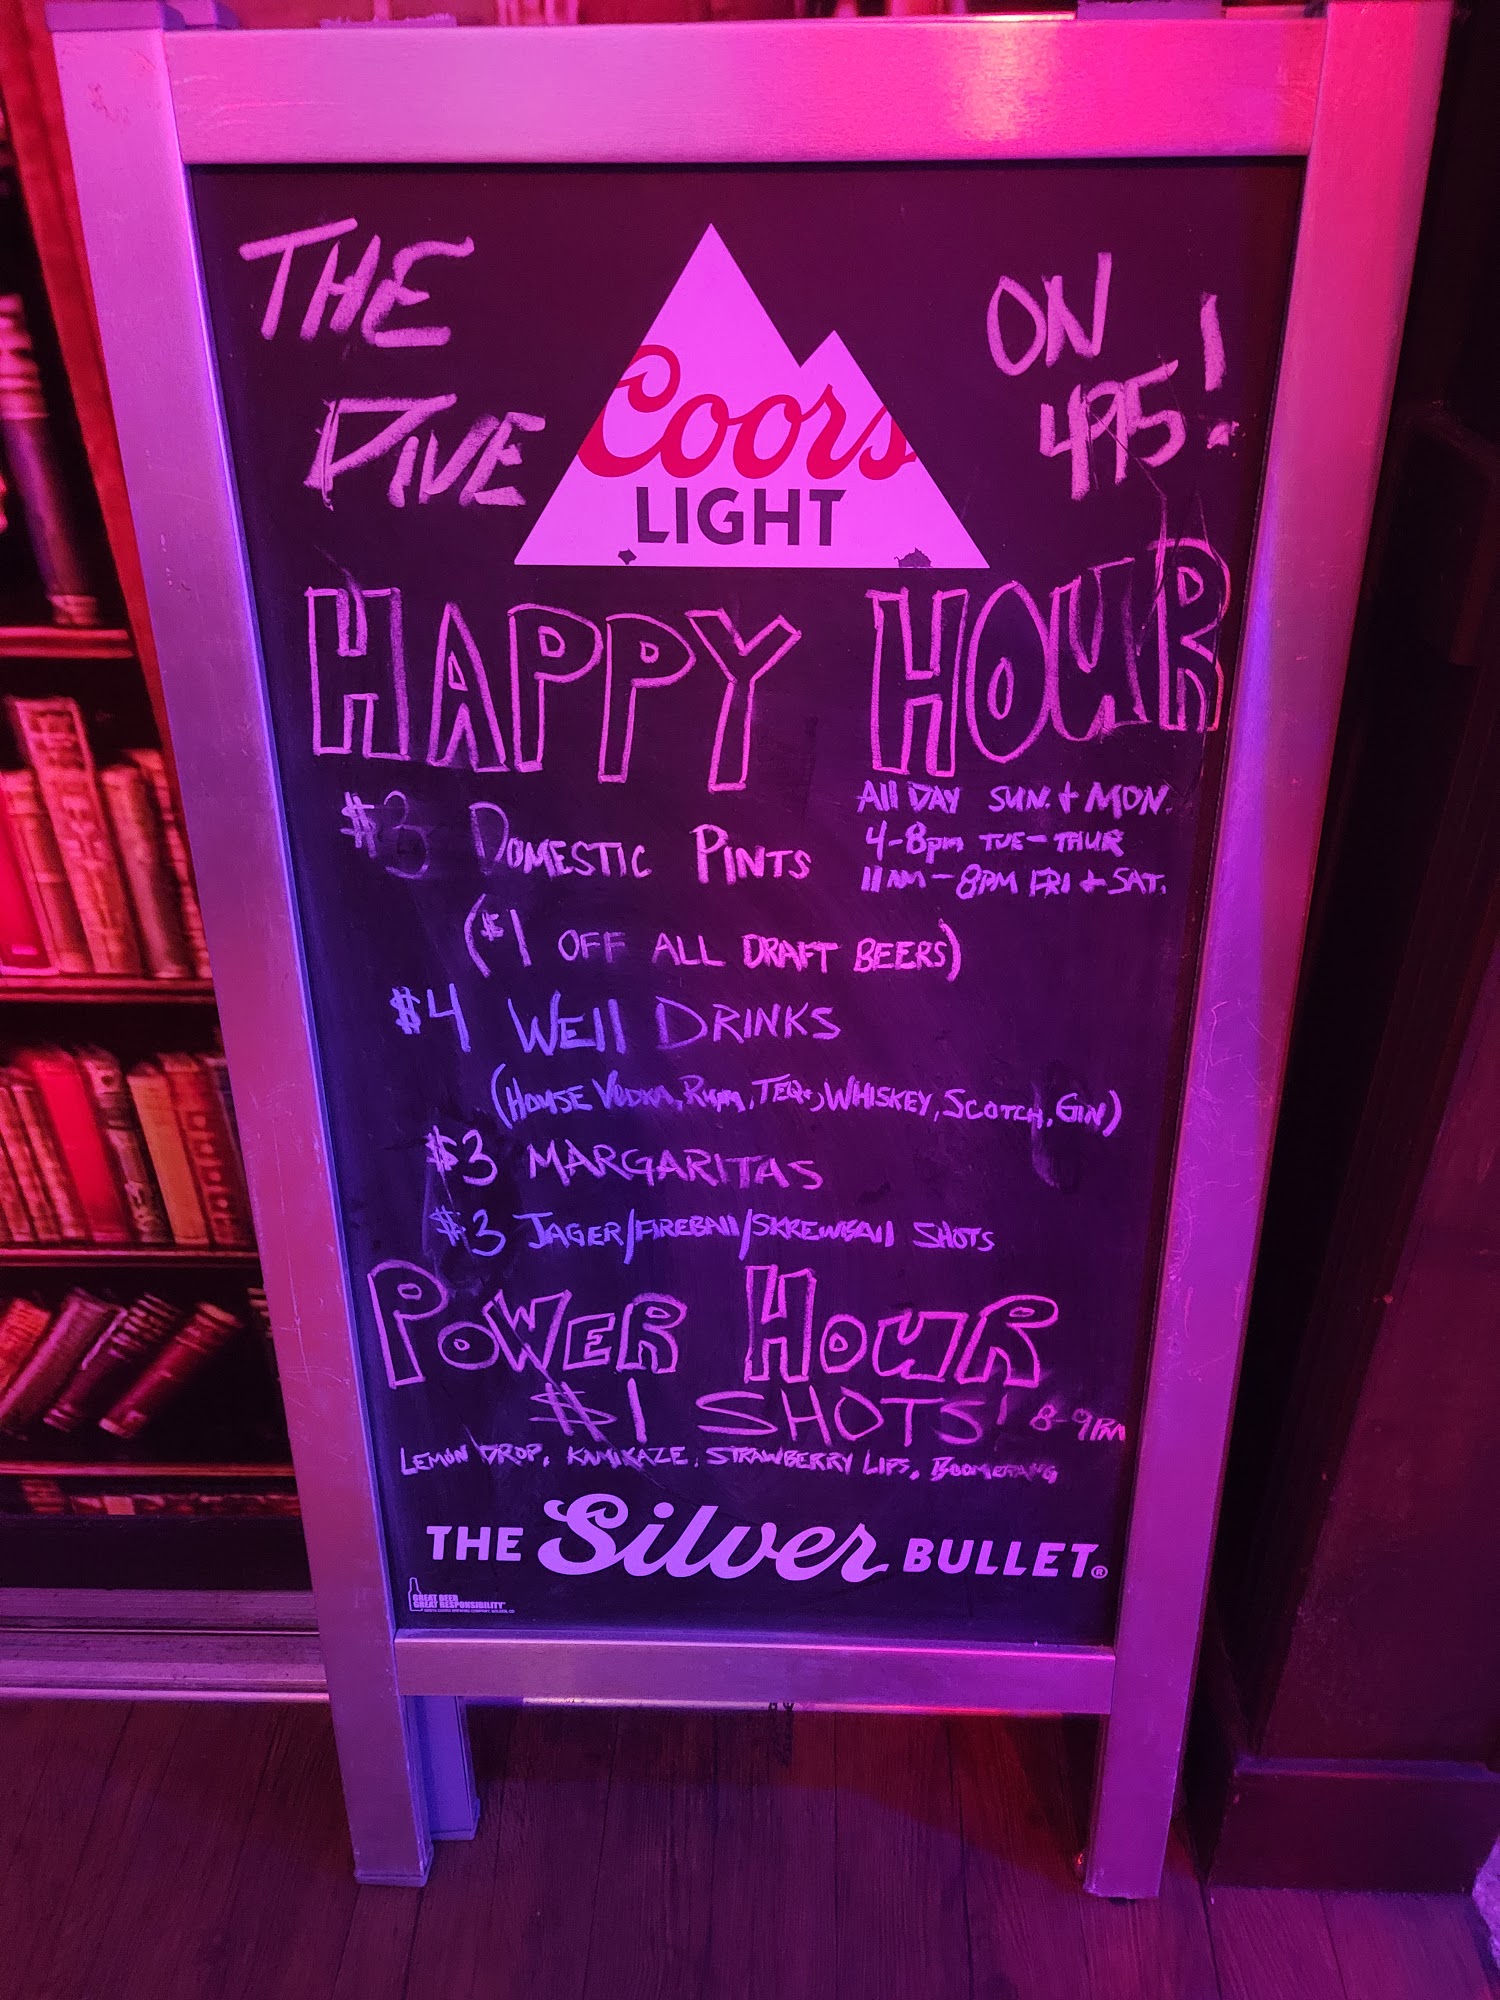 THE
DIVE
ON
495!
Coors
LIGHT
HAPPY HOUR
$3 DOMESTIC PINTS
ALL DAY SUN. + MON.
4-8pm TUE-THUR
11AM-8PM FRI + SAT.
($1 OFF ALL DRAFT BEERS)
$4 WELL DRINKS
(HOUSE VODKA, RUM, TEQ., WHISKEY, SCOTCH, GIN)
$3 MARGARITAS
$3 JAGER/FIREBALL/SKREWBALL SHOTS
POWER HOUR
$1 SHOTS! 8-9PM
LEMON DROP, KAMIKAZE, STRAWBERRY LIPS, BOOMERANG
THE Silver BULLET®
GREAT BEER
GREAT RESPONSIBILITY